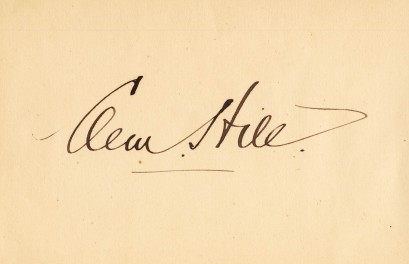 Clem. Hill.